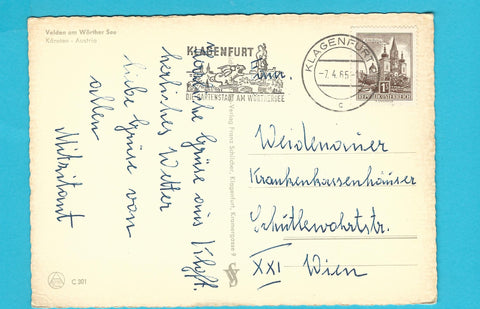 Velden am Wörther See
Kärnten - Austria
KLAGENFURT
DIE GARTENSTADT AM WÖRTHERSEE
KLAGENFURT
-7.4.65-
c
1S
REPUBLIK ÖSTERREICH
Herzliche Grüße aus Klgft.
herrliches Wetter
liebe Grüße von
allen
Fam.
Weidenauer
Krankenkassenhäuser
XXI Wien
Verlag Franz Schilcher, Klagenfurt, Kramergasse 9
C 301